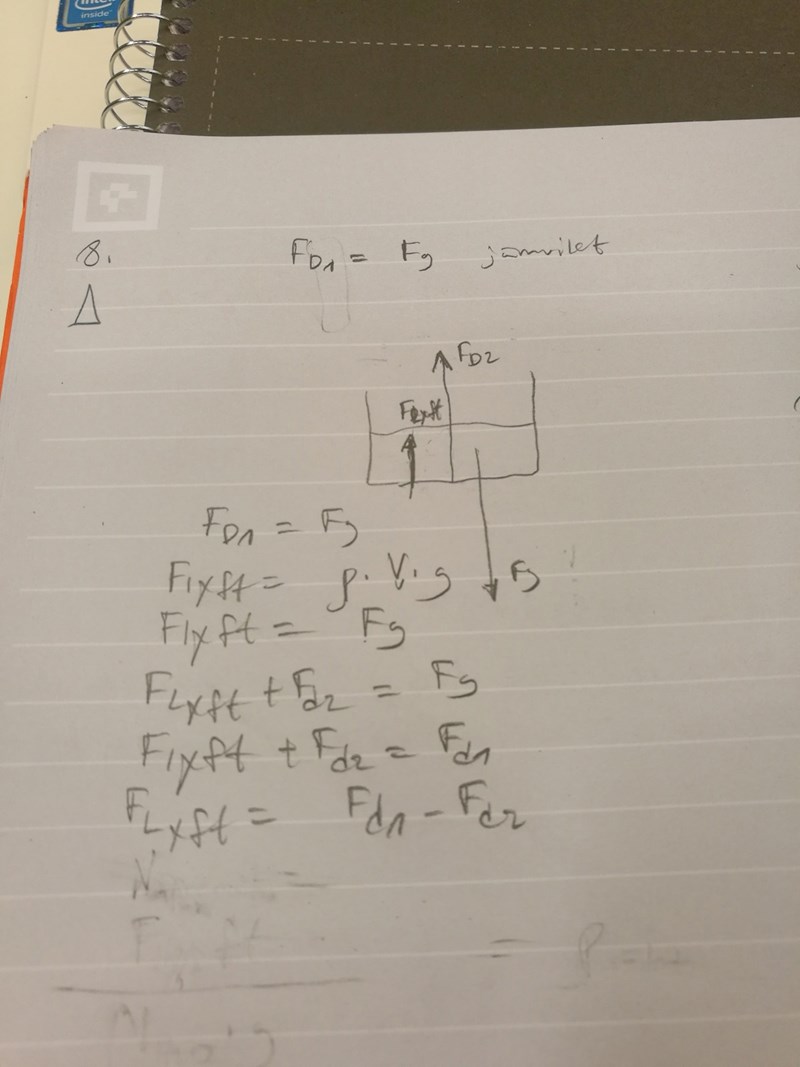 intel inside
8.
F_D1 = Fg jämvikt
Δ
F_D2
F_Lyft
F_D1 = Fg
F_lyft = ρ · V · g
Fg
F_lyft = Fg
F_Lyft + F_d2 = Fg
F_lyft + F_d2 = F_d1
F_Lyft = F_d1 - F_d2
=